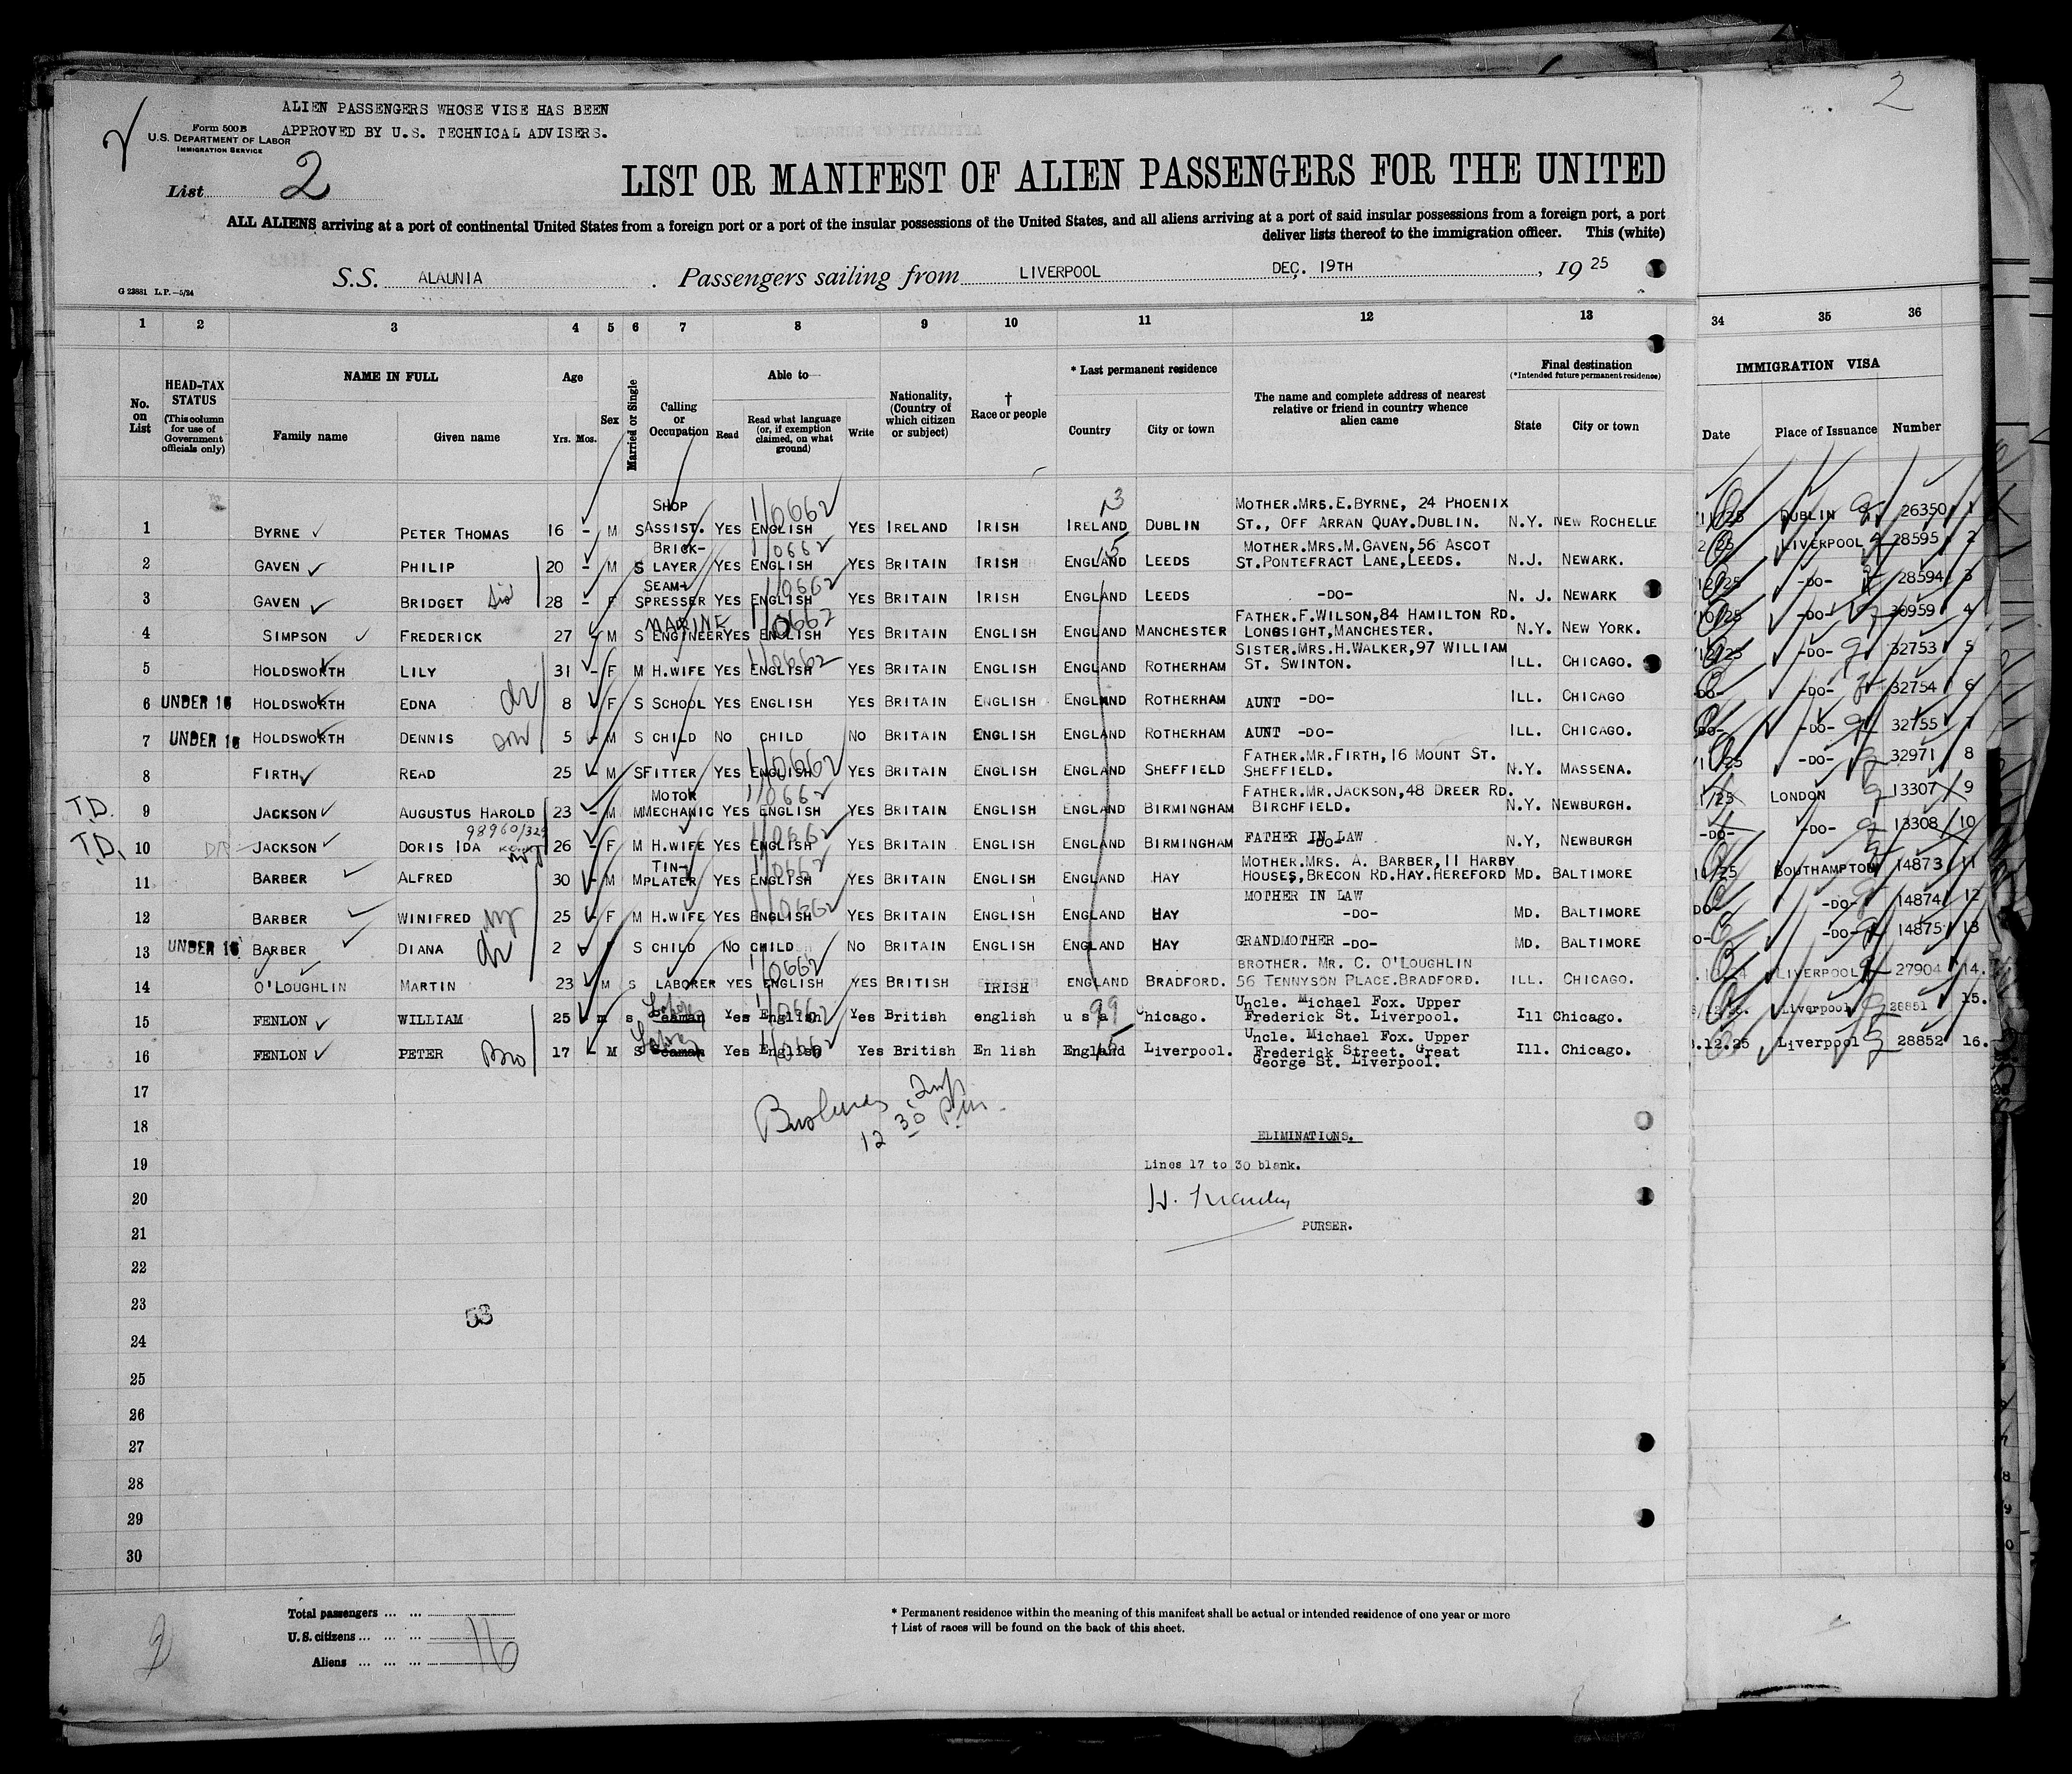 2
ALIEN PASSENGERS WHOSE VISE HAS BEEN
APPROVED BY U.S. TECHNICAL ADVISERS.
Form 500 B
U.S. DEPARTMENT OF LABOR
IMMIGRATION SERVICE
List 2
LIST OR MANIFEST OF ALIEN PASSENGERS FOR THE UNITED
ALL ALIENS arriving at a port of continental United States from a foreign port or a port of the insular possessions of the United States, and all aliens arriving at a port of said insular possessions from a foreign port, a port
deliver lists thereof to the immigration officer. This (white)
S.S. ALAUNIA . Passengers sailing from LIVERPOOL DEC. 19TH , 19 25
G 23881 L.P.—5/24
1 2 3 4 5 6 7 8 9 10 11 12 13 34 35 36
No. on List
HEAD-TAX STATUS (This column for use of Government officials only)
NAME IN FULL
Family name Given name
Age
Yrs. Mos.
Sex
Married or Single
Calling or Occupation
Able to—
Read Read what language (or, if exemption claimed, on what ground) Write
Nationality, (Country of which citizen or subject)
† Race or people
* Last permanent residence
Country City or town
The name and complete address of nearest relative or friend in country whence alien came
Final destination
(*Intended future permanent residence)
State City or town
IMMIGRATION VISA
Date Place of Issuance Number
1 BYRNE PETER THOMAS 16 - M S SHOP ASSIST. YES ENGLISH YES IRELAND IRISH IRELAND DUBLIN MOTHER.MRS.E.BYRNE, 24 PHOENIX ST., OFF ARRAN QUAY.DUBLIN. N.Y. NEW ROCHELLE DUBLIN 26350 1
2 GAVEN PHILIP 20 - M S BRICK-LAYER YES ENGLISH YES BRITAIN IRISH ENGLAND LEEDS MOTHER.MRS.M.GAVEN,56 ASCOT ST.PONTEFRACT LANE,LEEDS. N.J. NEWARK. LIVERPOOL 28595 2
3 GAVEN BRIDGET Sis 28 - F S SEAM-PRESSER YES ENGLISH YES BRITAIN IRISH ENGLAND LEEDS -DO- N. J. NEWARK -DO- 28594 3
4 SIMPSON FREDERICK 27 - M S MARINE ENGINEER YES ENGLISH YES BRITAIN ENGLISH ENGLAND MANCHESTER FATHER.F.WILSON,84 HAMILTON RD. LONGSIGHT,MANCHESTER. N.Y. NEW YORK. -DO- 30959 4
5 HOLDSWORTH LILY 31 - F M H.WIFE YES ENGLISH YES BRITAIN ENGLISH ENGLAND ROTHERHAM SISTER.MRS.H.WALKER,97 WILLIAM ST. SWINTON. ILL. CHICAGO. -DO- 32753 5
6 UNDER 16 HOLDSWORTH EDNA 8 - F S SCHOOL YES ENGLISH YES BRITAIN ENGLISH ENGLAND ROTHERHAM AUNT -DO- ILL. CHICAGO -DO- -DO- 32754 6
7 UNDER 16 HOLDSWORTH DENNIS son 5 - M S CHILD NO CHILD NO BRITAIN ENGLISH ENGLAND ROTHERHAM AUNT -DO- ILL. CHICAGO. -DO- -DO- 32755 7
8 FIRTH READ 25 - M S FITTER YES ENGLISH YES BRITAIN ENGLISH ENGLAND SHEFFIELD FATHER.MR.FIRTH,16 MOUNT ST. SHEFFIELD. N.Y. MASSENA. -DO- 32971 8
T.D. 9 JACKSON AUGUSTUS HAROLD 23 - M M MOTOR MECHANIC YES ENGLISH YES BRITAIN ENGLISH ENGLAND BIRMINGHAM FATHER.MR.JACKSON,48 DREER RD. BIRCHFIELD. N.Y. NEWBURGH. LONDON 13307 9
T.D. 10 JACKSON DORIS IDA 26 - F M H.WIFE YES ENGLISH YES BRITAIN ENGLISH ENGLAND BIRMINGHAM FATHER IN LAW -DO- N.Y, NEWBURGH -DO- -DO- 13308 10
11 BARBER ALFRED 30 - M M TIN-PLATER YES ENGLISH YES BRITAIN ENGLISH ENGLAND HAY MOTHER.MRS. A. BARBER,11 HARBY HOUSES,BRECON RD.HAY.HEREFORD MD. BALTIMORE SOUTHAMPTON 14873 11
12 BARBER WINIFRED 25 - F M H.WIFE YES ENGLISH YES BRITAIN ENGLISH ENGLAND HAY MOTHER IN LAW -DO- MD. BALTIMORE -DO- 14874 12
13 UNDER 16 BARBER DIANA 2 F S CHILD NO CHILD NO BRITAIN ENGLISH ENGLAND HAY GRANDMOTHER -DO- MD. BALTIMORE -DO- 14875 13
14 O'LOUGHLIN MARTIN 23 M S LABORER YES ENGLISH YES BRITISH IRISH ENGLAND BRADFORD. BROTHER. MR. C. O'LOUGHLIN 56 TENNYSON PLACE.BRADFORD. ILL. CHICAGO. LIVERPOOL 27904 14.
15 FENLON WILLIAM 25 m s Seaman Yes English Yes British english u s a Chicago. Uncle. Michael Fox. Upper Frederick St. Liverpool. Ill Chicago. Liverpool 28851 15.
16 FENLON PETER Bro 17 - M S Seaman Yes English Yes British En lish England Liverpool. Uncle. Michael Fox. Upper Frederick Street. Great George St. Liverpool. Ill. Chicago. .12.25 Liverpool 28852 16.
17
18
12 30 Pm.
ELIMINATIONS.
19
Lines 17 to 30 blank.
20
21
PURSER.
22
23
53
24
25
26
27
28
29
30
Total passengers ... ...
U.S. citizens ... ... ...
Aliens ... ... ... 16
* Permanent residence within the meaning of this manifest shall be actual or intended residence of one year or more
† List of races will be found on the back of this sheet.